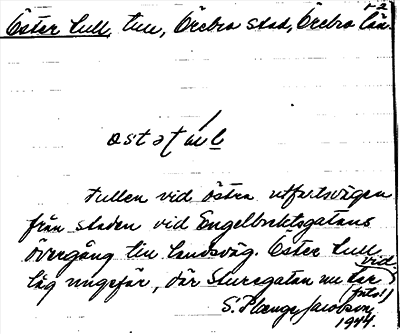 Öster tull, tull, Örebro stad, Örebro län.
ostətul
Tullen vid östra utfartsvägen
från staden vid Engelbrektsgatans
övergång till landsväg. Öster tull
låg ungefär, där Sturegatan nu tar vid.
(forts!)
S. Plænge Jacobson
1944